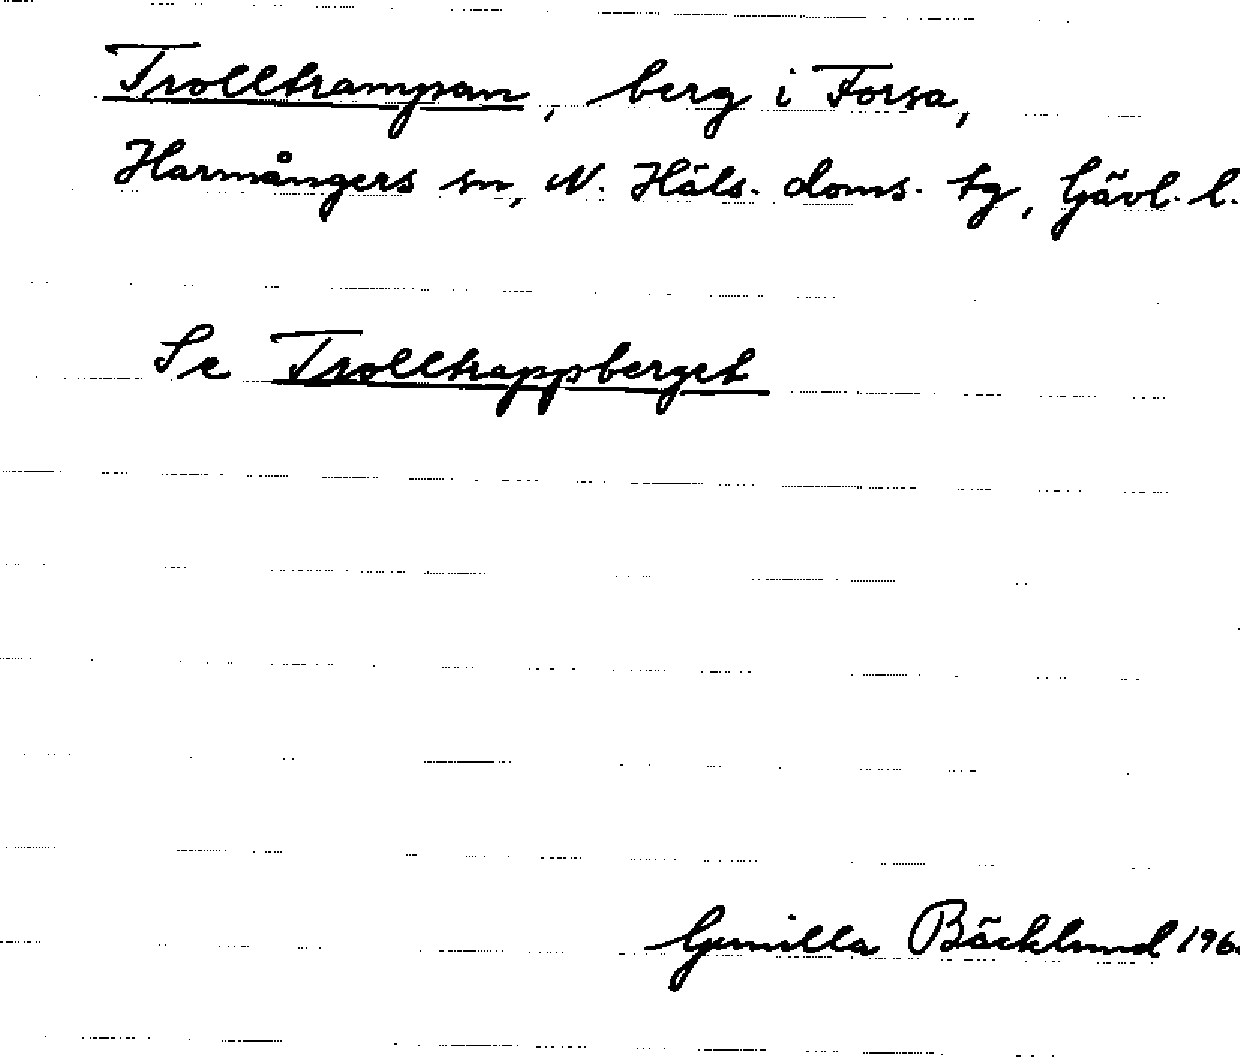 Trolltrampan, berg i Forsa,
Harmångers sn, N. Häls. doms. tg, Gävl. l.
Se Trolltrappberget
Gunilla Bäcklund 196